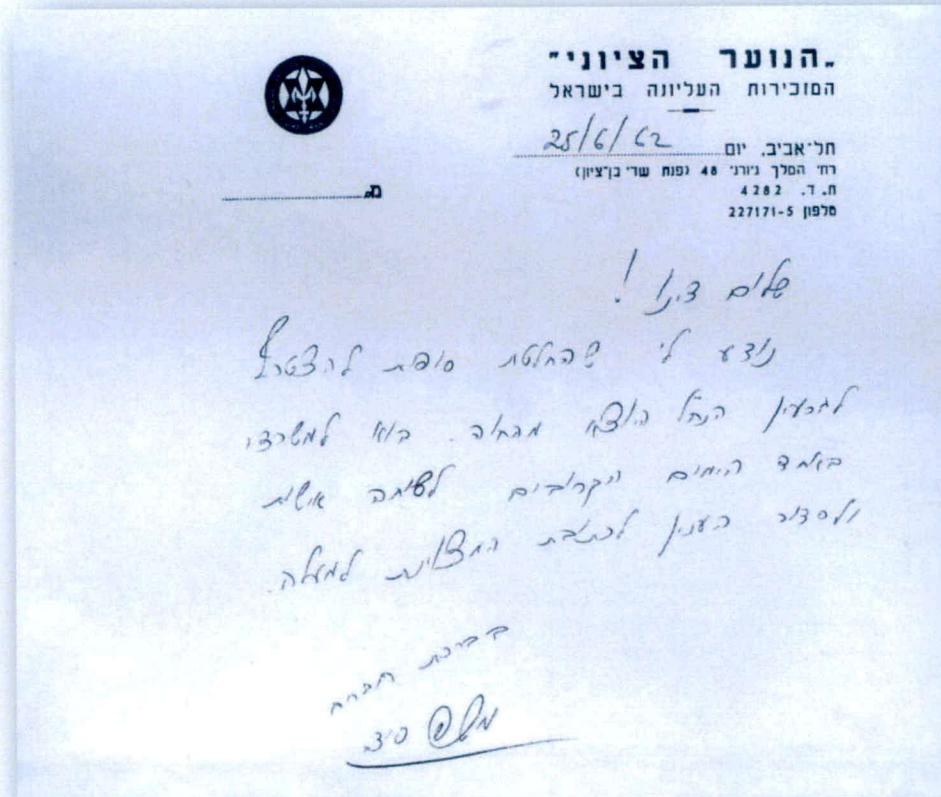 „הנוער הציוני"
המזכירות העליונה בישראל
תל־אביב, יום 25/6/62
רח׳ המלך ג׳ורג׳ 48 (פנת שד׳ בן־ציון)
ת. ד. 4282
טלפון 227171-5
מס.
שלום צ׳ינו!
נודע לי שהחלטת סופית להצטרף
לגרעין הנח״ל היוצא מהחוה. בוא למשרדי
באחד הימים הקרובים לשיחה אישית
ולסדור הענין לכתובת המצוינת למעלה.
בברכת חברים
משה